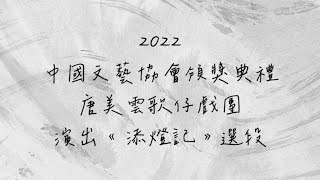 2022
中國文藝協會頒獎典禮
唐美雲歌仔戲團
演出《添燈記》選段